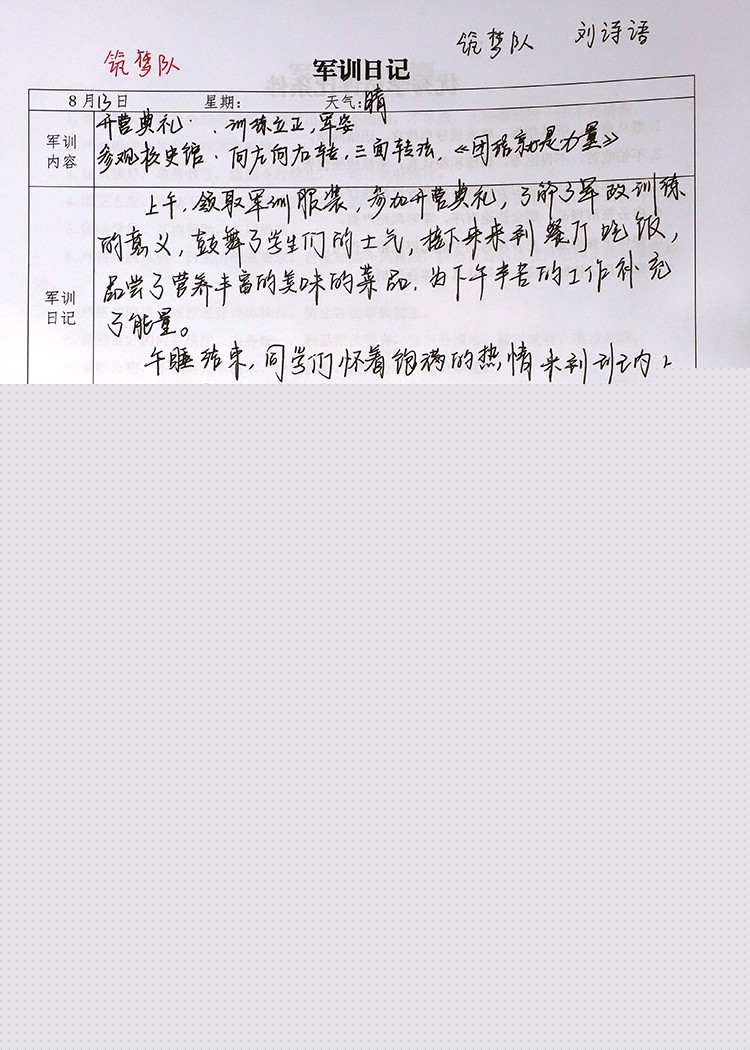 筑梦队 刘诗语
筑梦队
军训日记
8月13日 星期: 天气:晴
军训内容
开营典礼. 训练立正,军姿
参观校史馆.向左向右转,三面转法,《团结就是力量》
军训日记
上午,领取军训服装,参加开营典礼,了解了军政训练
的意义,鼓舞了学生们的士气,接下来来到餐厅吃饭,
品尝了营养丰富的美味的菜品,为下午辛苦的工作补充
了能量。
午睡结束,同学们怀着饱满的热情来到